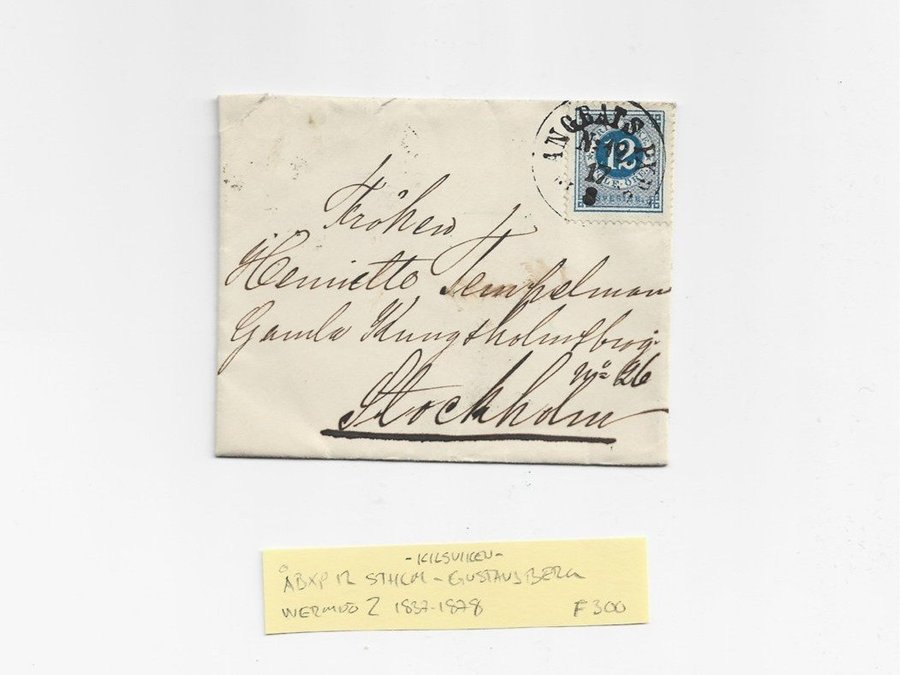 ÅNGBÅTS PXP
No 12
17
8
12
Fröken
Henriette Tempelman
Gamla Kungsholmsbrog.
No 26
Stockholm
-KILSVIKEN-
ÅBXP 12 STHLM - GUSTAVSBERG
2 1837-1878 F 300